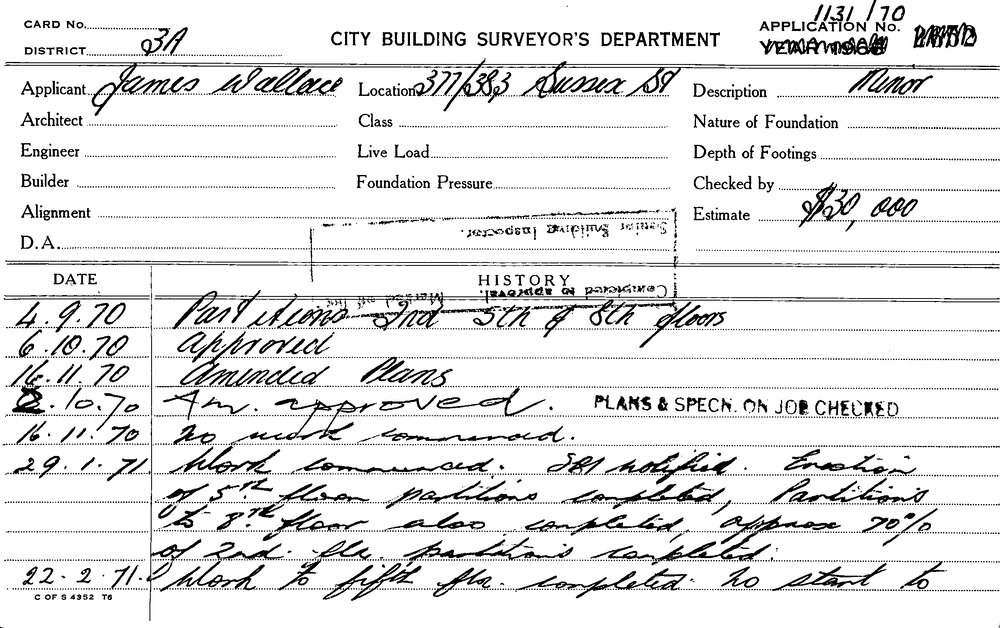 CARD No.
DISTRICT 3A
CITY BUILDING SURVEYOR'S DEPARTMENT
1131/70
APPLICATION No.
Applicant James Wallace
Location 377/383 Sussex St
Description Minor
Architect
Class
Nature of Foundation
Engineer
Live Load
Depth of Footings
Builder
Foundation Pressure
Checked by
Alignment
Estimate $30,000
D.A.
Senior Building Inspector.
DATE
HISTORY
Completed to approval.
Marked off
4.9.70 Partitions 2nd 5th & 8th floors
6.10.70 Approved
16.11.70 Amended Plans
.10.70 Am. approved. PLANS & SPECN. ON JOB CHECKED
16.11.70 No work commenced.
29.1.71. Work commenced. SBI notified. Erection
of 5th floor partitions completed, Partitions
to 8th floor also completed, approx 70%
of 2nd. flr. partitions completed.
22.2.71. Work to fifth flr. completed. No start to
C OF S 4352 T6